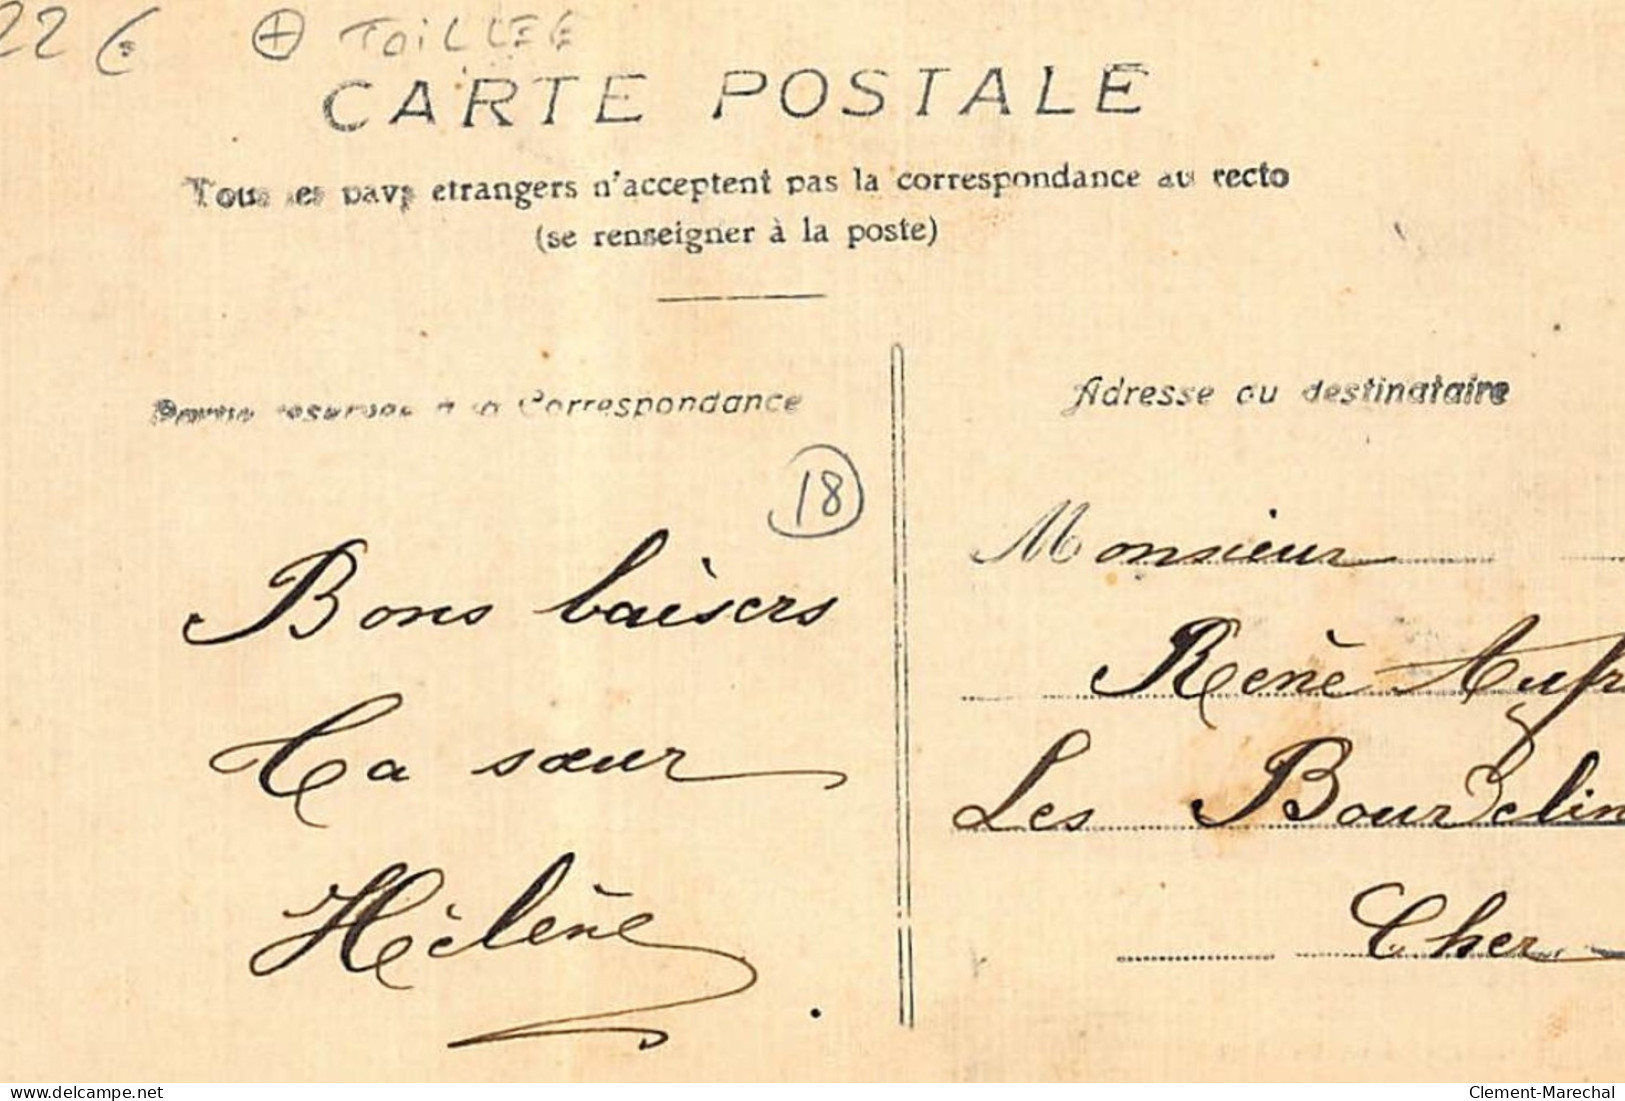 22 € ⊕ TOILLEE
CARTE POSTALE
Tous les pays etrangers n'acceptent pas la correspondance au recto
(se renseigner à la poste)
Partie reservee a la Correspondance
Adresse du destinataire
18
Bons baisers
Ta sœur
Hélène
Monsieur
René Aufr
Les Bourdelin
Cher
delcampe.net
Clement-Marechal